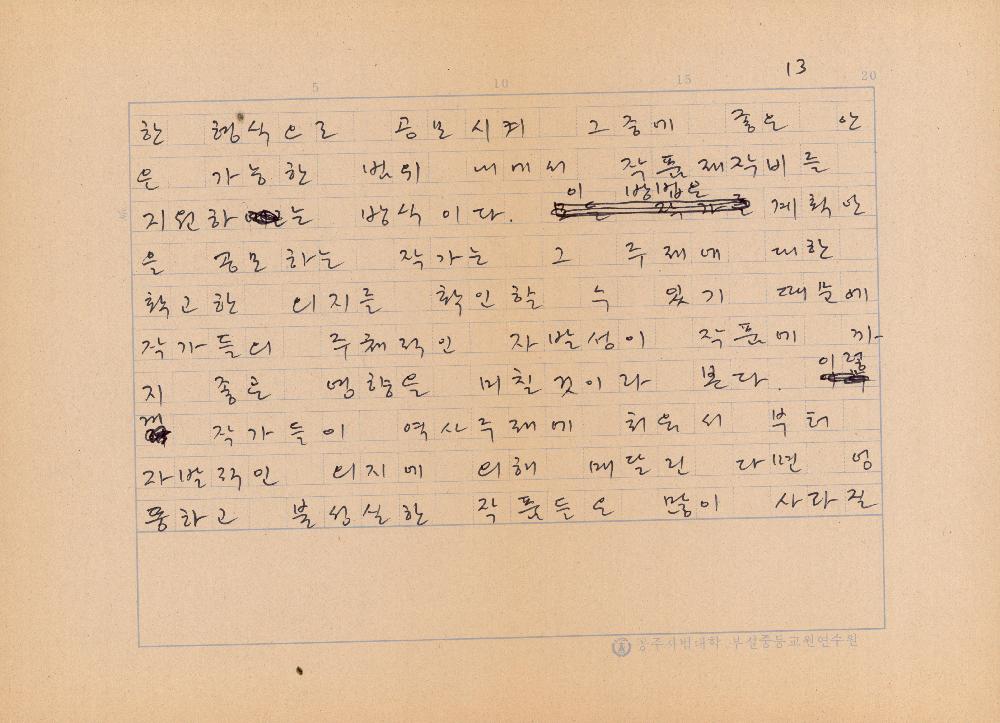 13
5 10 15 20
한 형식으로 공모시켜 그중에 좋은 안
은 가능한 범위 내에서 작품제작비를
이 방법은
지원하는 방식이다. 계획안
을 공모하는 작가는 그 주제에 대한
확고한 의지를 확인할 수 있기 때문에
작가들의 주체적인 자발성이 작품에 까
지 좋은 영향을 미칠것이라 본다. 이렇
게 작가들이 역사주제에 처음서 부터
자발적인 의지에 의해 매달린 다면 엉
뚱하고 불성실한 작품들은 많이 사라질
공주사범대학 부설중등교원연수원